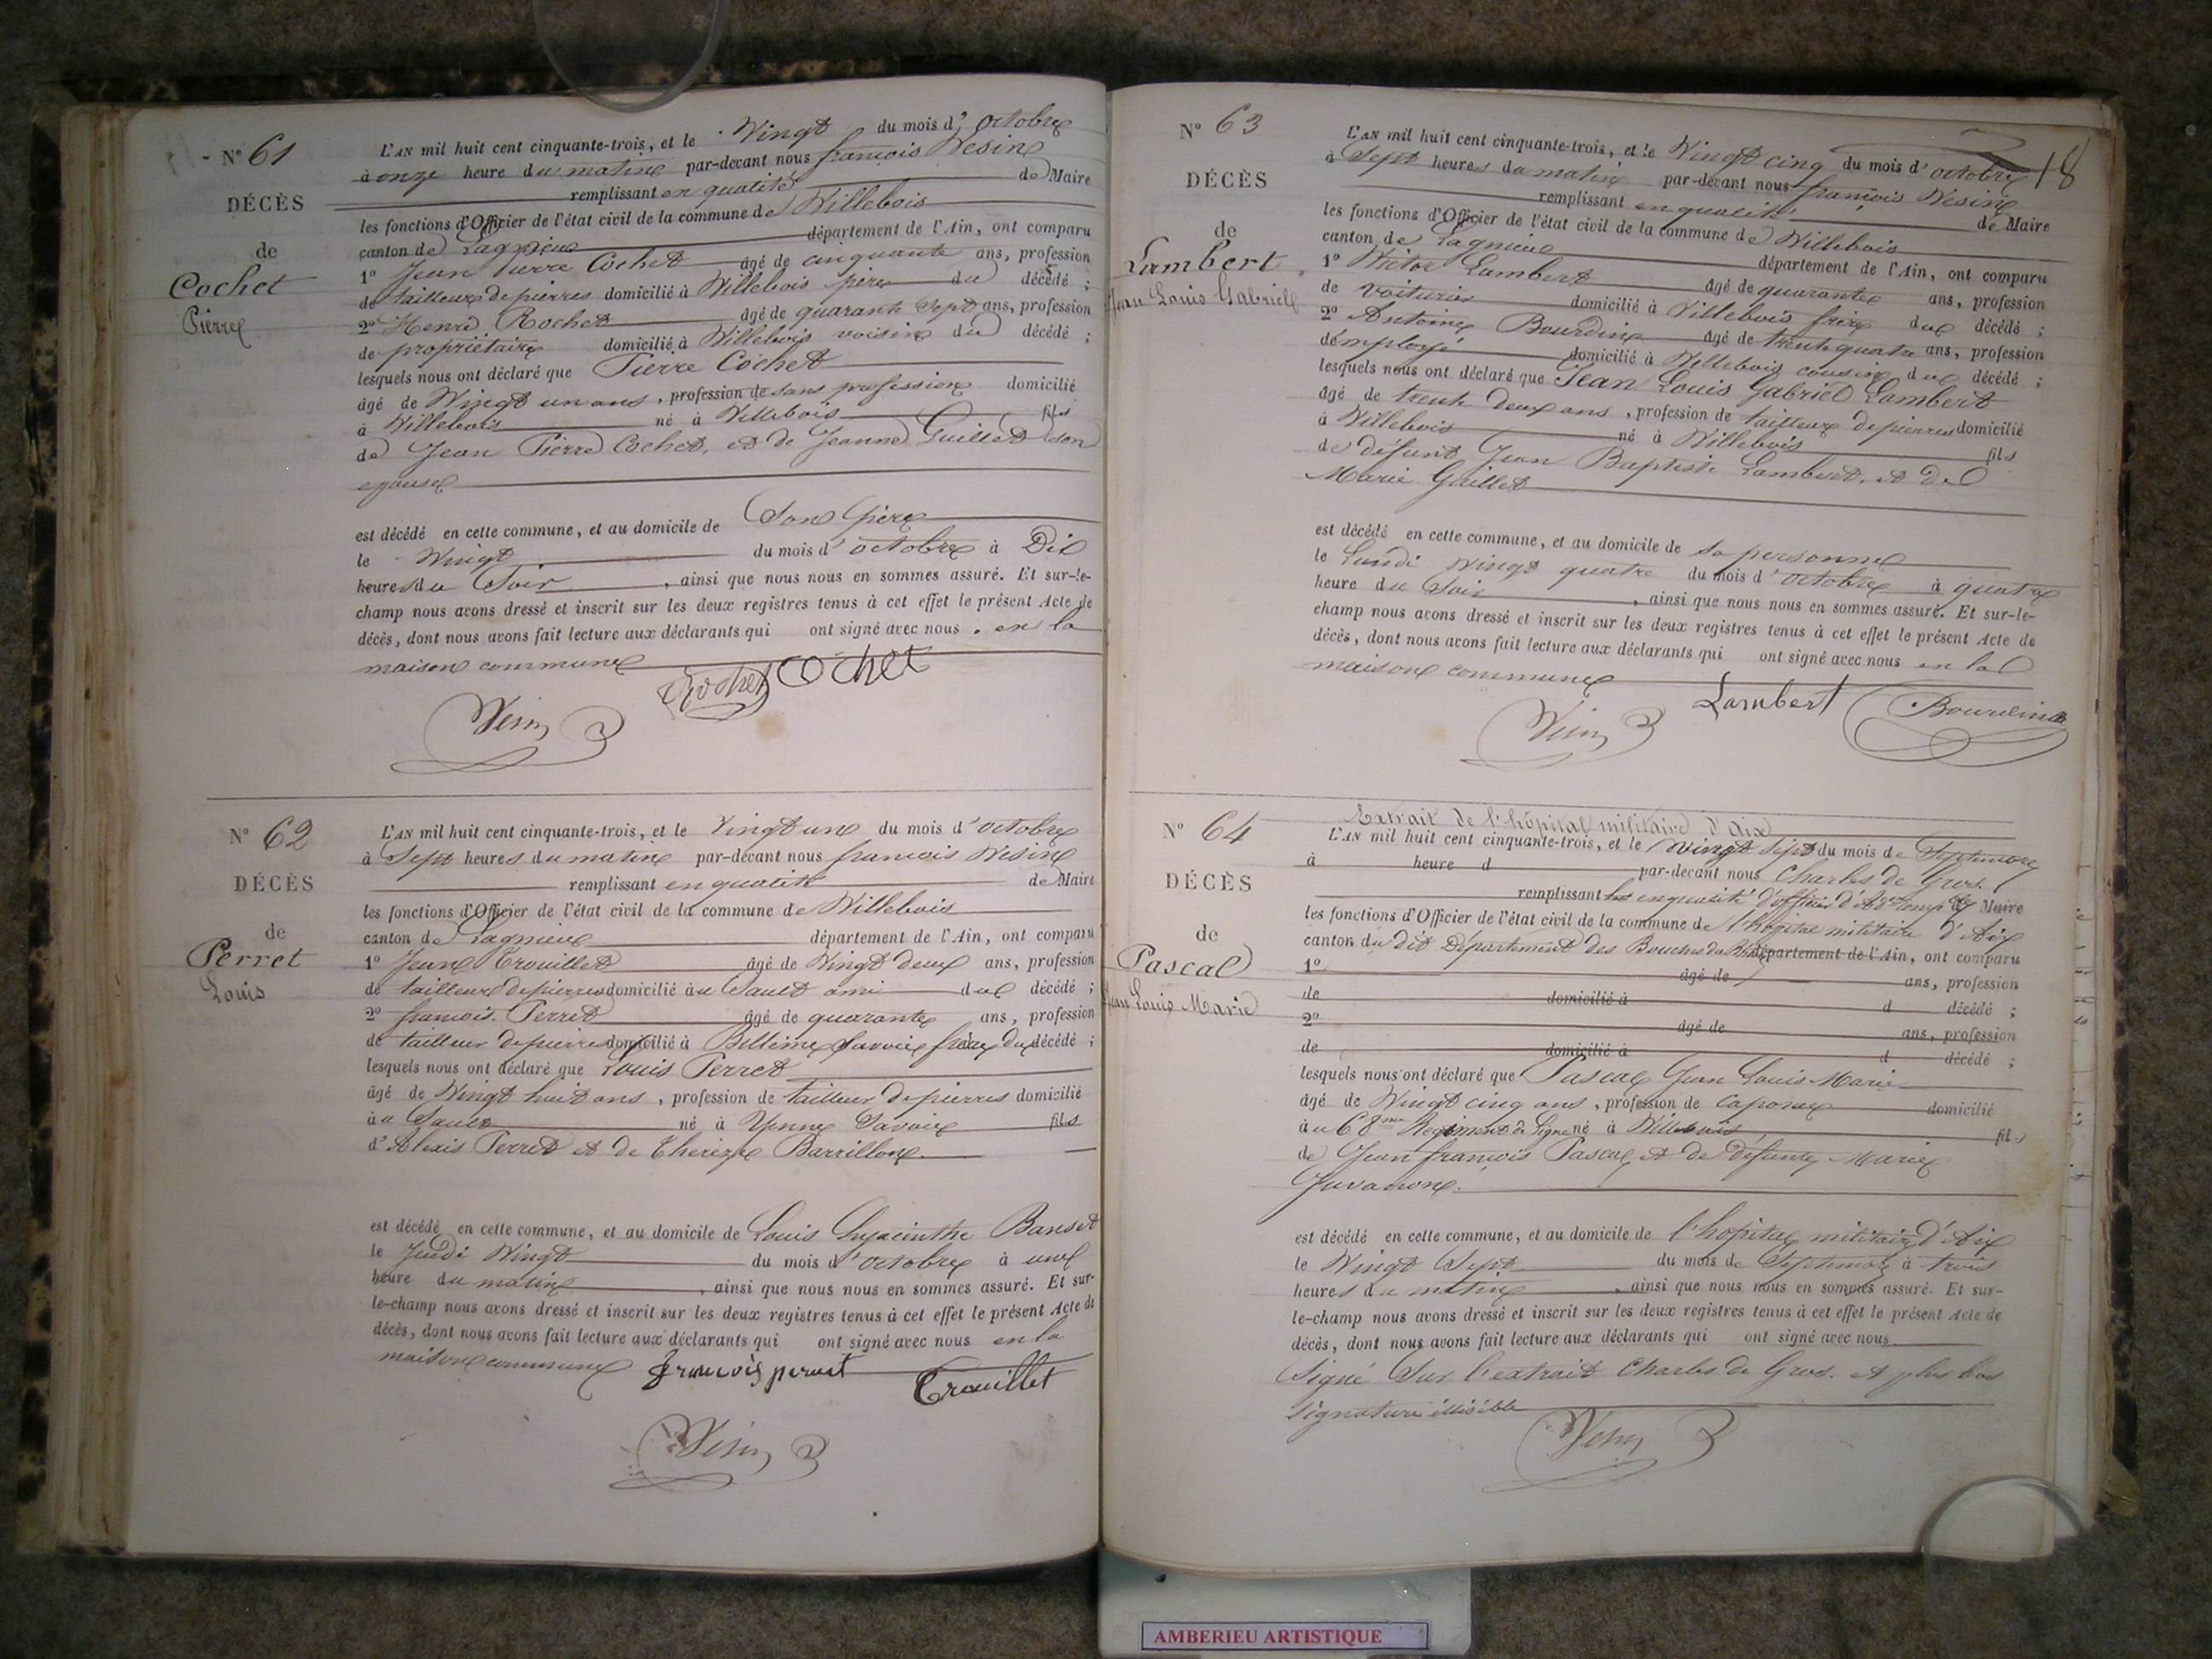 N° 61
DÉCÈS
de
Cochet
Pierre
L'AN mil huit cent cinquante-trois, et le Vingt du mois d'octobre
à onze heure du matin par-devant nous françois Vesin
remplissant en qualité de Maire
les fonctions d'Officier de l'état civil de la commune de Villebois
canton de Lagnieu département de l'Ain, ont comparu
1° Jean Pierre Cochet âgé de cinquante ans, profession
de tailleur de pierres domicilié à Villebois père du décédé ;
2° Henri Rochet âgé de quarante sept ans, profession
de propriétaire domicilié à Villebois voisin du décédé ;
lesquels nous ont déclaré que Pierre Cochet
âgé de Vingt un ans, profession de sans profession domicilié
à Villebois né à Villebois fils
de Jean Pierre Cochet, et de Jeanne Guillet son
epouse
est décédé en cette commune, et au domicile de Son père
le Vingt du mois d'octobre à Dix
heures du Soir, ainsi que nous nous en sommes assuré. Et sur-le-
champ nous avons dressé et inscrit sur les deux registres tenus à cet effet le présent Acte de
décès, dont nous avons fait lecture aux déclarants qui ont signé avec nous. en la
maison commune
Rochet Cochet
Vesin
N° 62
DÉCÈS
de
Perret
Louis
L'AN mil huit cent cinquante-trois, et le Vingt un du mois d'octobre
à Sept heures du matin par-devant nous francois Vesin
remplissant en qualité de Maire
les fonctions d'Officier de l'état civil de la commune de Villebois
canton de Lagnieu département de l'Ain, ont comparu
1° Jean Trouillet âgé de Vingt deux ans, profession
de tailleur de pierres domicilié au Sault ami du décédé ;
2° francois Perret âgé de quarante ans, profession
de tailleur de pierres domicilié à Billième Savoie frère du décédé ;
lesquels nous ont déclaré que Louis Perret
âgé de Vingt huit ans, profession de tailleur de pierres domicilié
au Sault né à Yenne Savoie fils
d'Alexis Perret et de Therèze Barrillon
est décédé en cette commune, et au domicile de Louis Hyacinthe Banset
le Jeudi Vingt du mois d'octobre à une
heure du matin, ainsi que nous nous en sommes assuré. Et sur-
le-champ nous avons dressé et inscrit sur les deux registres tenus à cet effet le présent Acte de
décès, dont nous avons fait lecture aux déclarants qui ont signé avec nous en la
maison commune françois perret Trouillet
Vesin
18
N° 63
DÉCÈS
de
Lambert
Jean Louis Gabriel
L'AN mil huit cent cinquante-trois, et le Vingt cinq du mois d'octobre
à Sept heures du matin par-devant nous françois Vesin
remplissant en qualité de Maire
les fonctions d'Officier de l'état civil de la commune de Villebois
canton de Lagnieu département de l'Ain, ont comparu
1° Victor Lambert âgé de quarante ans, profession
de voiturier domicilié à Villebois frère du décédé ;
2° Antoine Bourdin âgé de trente quatre ans, profession
d'employé domicilié à Villebois cousin du décédé ;
lesquels nous ont déclaré que Jean Louis Gabriel Lambert
âgé de trente deux ans, profession de tailleur de pierres domicilié
à Villebois né à Villebois fils
de défunt Jean Baptiste Lambert, et de
Marie Guillet
est décédé en cette commune, et au domicile de sa personne
le Lundi Vingt quatre du mois d'octobre à quatre
heure du Soir, ainsi que nous nous en sommes assuré. Et sur-le-
champ nous avons dressé et inscrit sur les deux registres tenus à cet effet le présent Acte de
décès, dont nous avons fait lecture aux déclarants qui ont signé avec nous en la
maison commune
Lambert Bourdin
Vesin
Extrait de l'hôpital militaire d'Aix
N° 64
DÉCÈS
de
Pascal
Jean Louis Marie
L'AN mil huit cent cinquante-trois, et le Vingt Sept du mois de Septembre
à heure d par-devant nous Charles de Gros.
remplissant en qualité d'officier d'Adon comp de Maire
les fonctions d'Officier de l'état civil de la commune de l'hôpital militaire d'Aix
canton du dit Département des Bouches du Rhône département de l'Ain, ont comparu
1° âgé de ans, profession
de domicilié à d décédé ;
2° âgé de ans, profession
de domicilié à d décédé ;
lesquels nous ont déclaré que Pascal Jean Louis Marie
âgé de Vingt cinq ans, profession de caporal domicilié
au 68me Regiment de Ligne né à Villebois fils
de Jean françois Pascal et de défunte Marie
Juvanon.
est décédé en cette commune, et au domicile de l'hopital militaire d'Aix
le Vingt Sept du mois de Septembre à trois
heures du matin, ainsi que nous nous en sommes assuré. Et sur-
le-champ nous avons dressé et inscrit sur les deux registres tenus à cet effet le présent Acte de
décès, dont nous avons fait lecture aux déclarants qui ont signé avec nous
Signé Sur l'extrait Charles de Gros. et plus bas
signature illisible
Vesin
AMBERIEU ARTISTIQUE